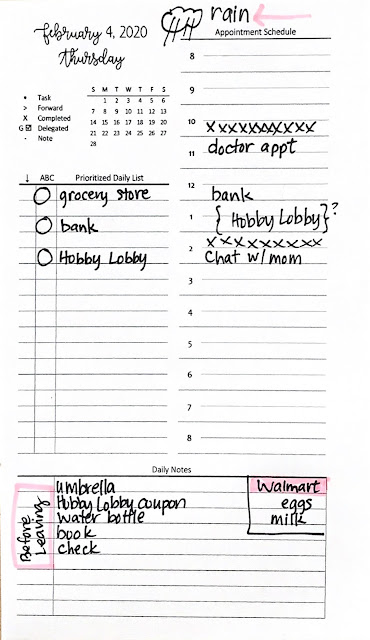 February 4, 2020
Thursday
rain
Appointment Schedule
S M T W T F S
1 2 3 4 5 6
7 8 9 10 11 12 13
14 15 16 17 18 19 20
21 22 23 24 25 26 27
28
• Task
> Forward
X Completed
G ☑ Delegated
- Note
↓ ABC Prioritized Daily List
grocery store
bank
Hobby Lobby
8
9
10 xxxxxxxxxx
11 doctor appt
12 bank
1 { Hobby Lobby }?
2 xxxxxxxxx
Chat w/mom
3
4
5
6
7
8
Daily Notes
Before
Leaving
umbrella
Hobby Lobby coupon
water bottle
book
check
Walmart
eggs
milk